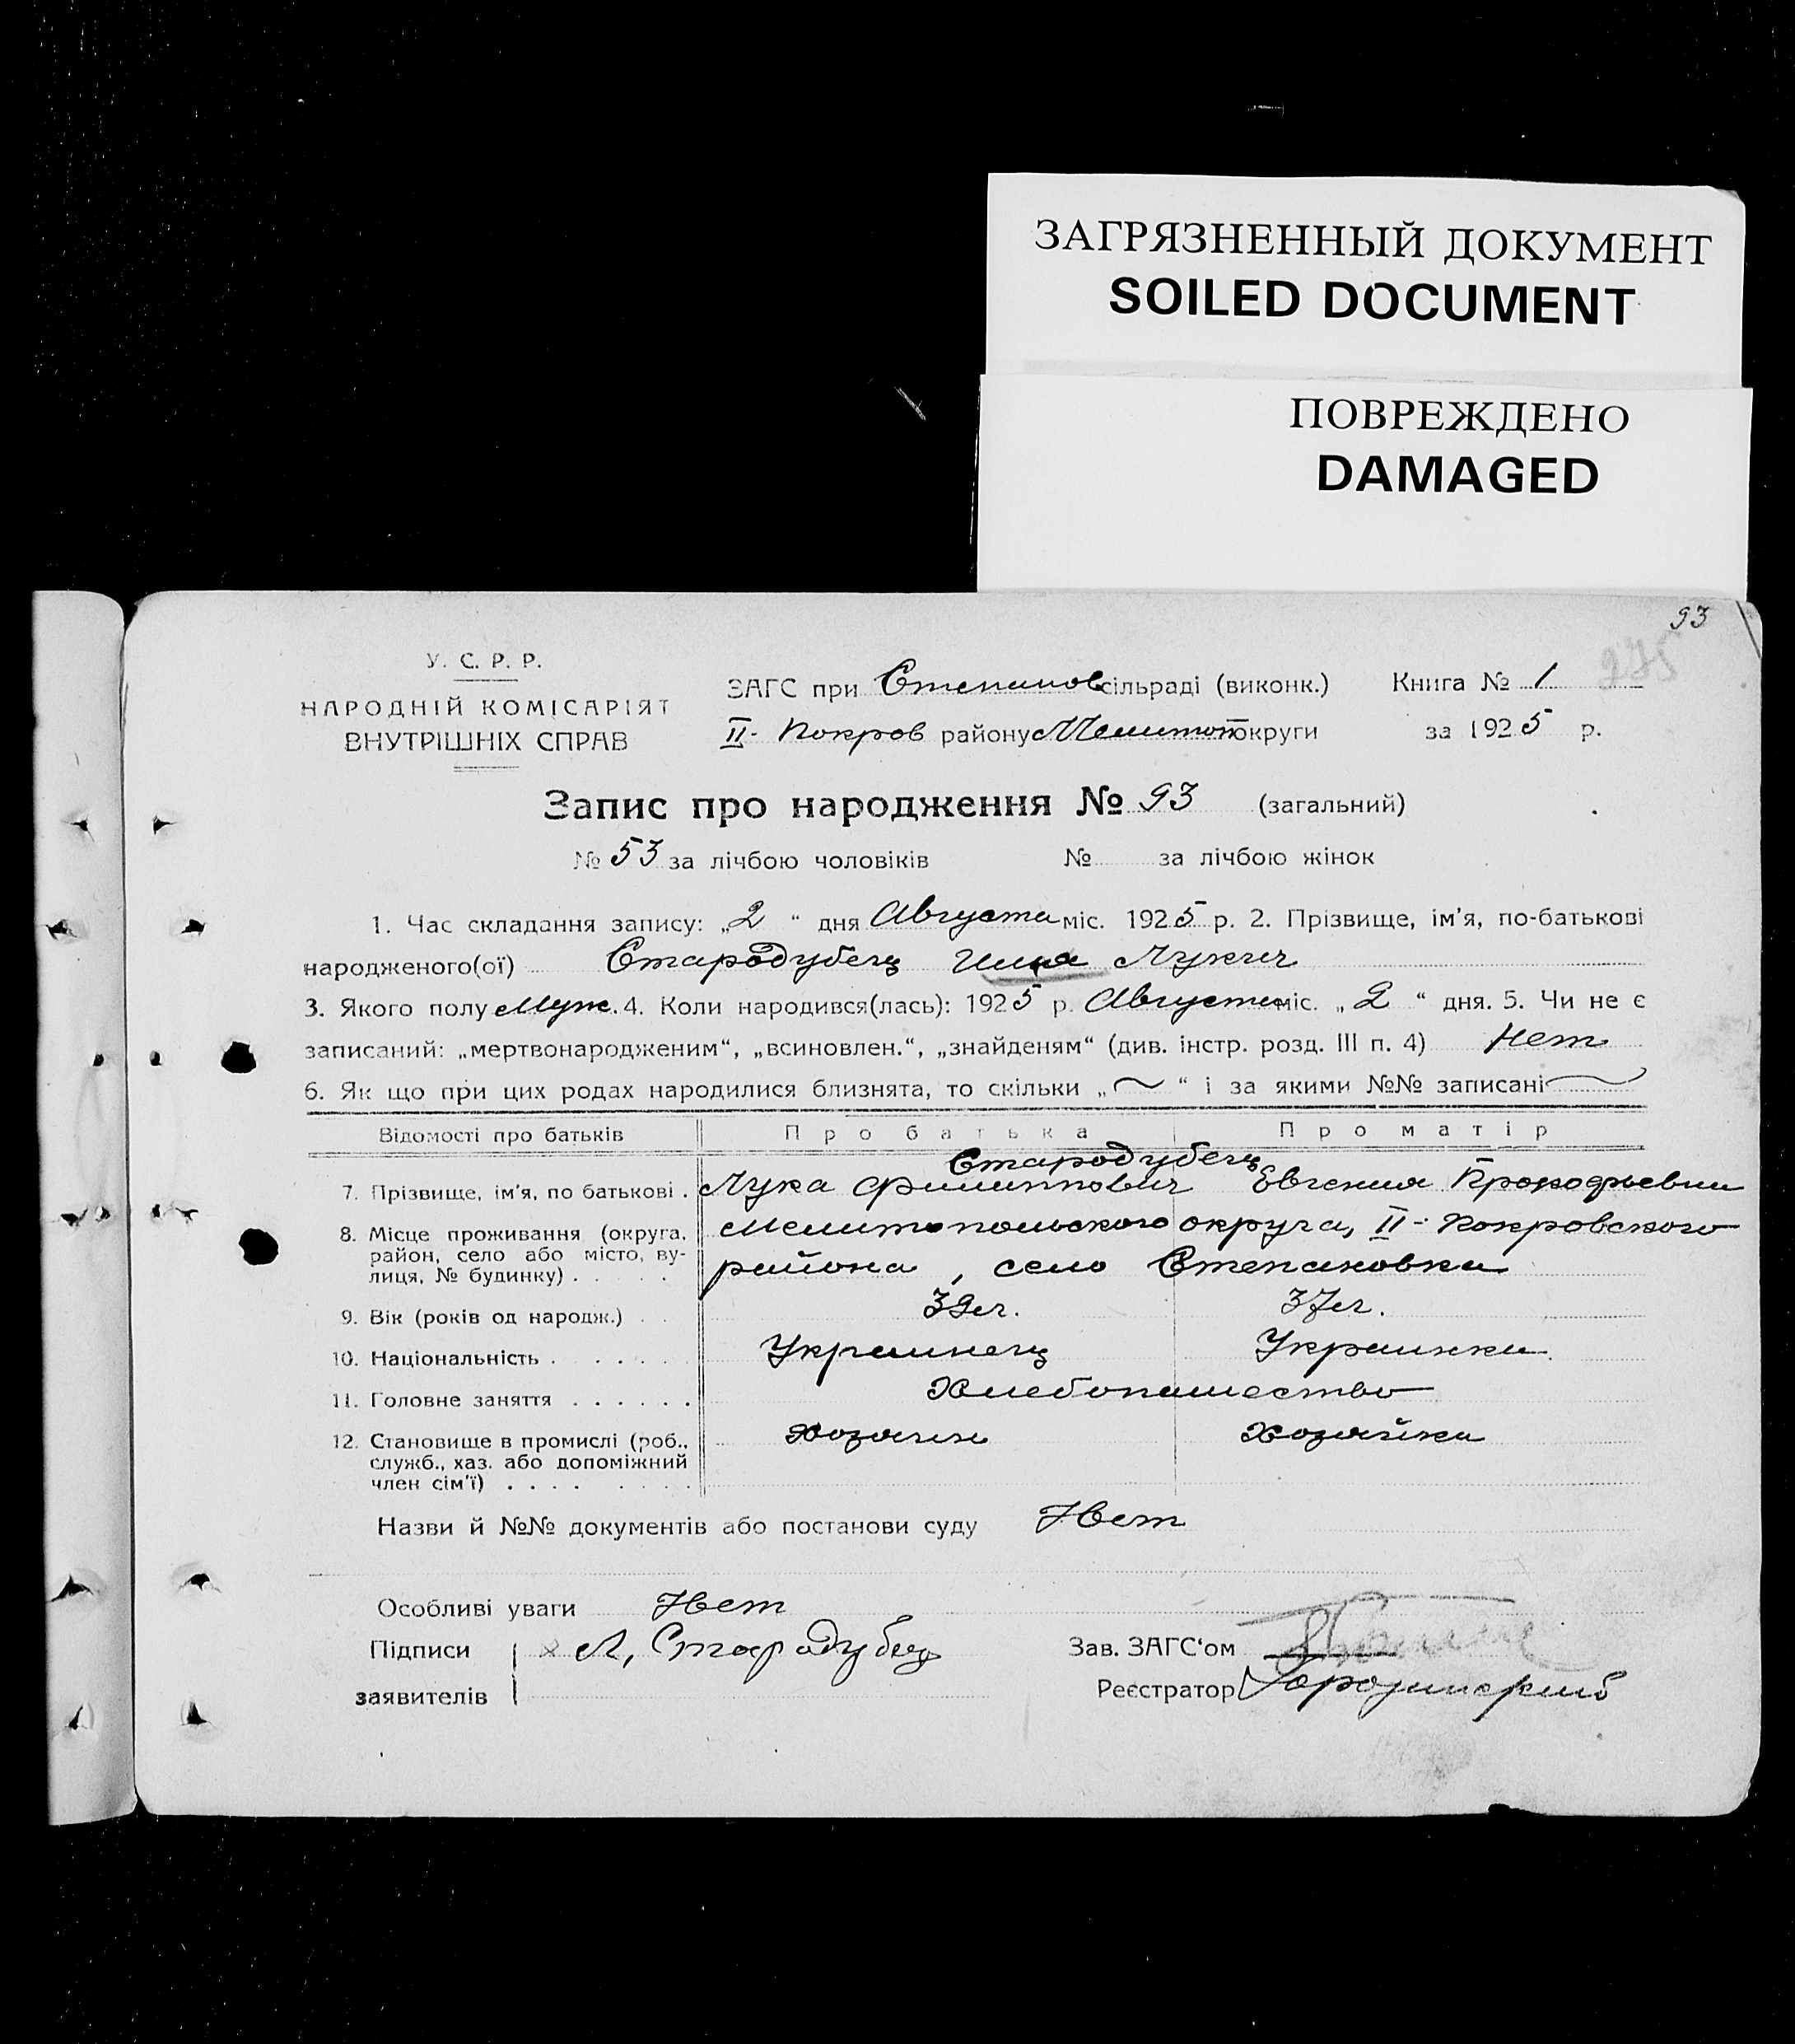 ЗАГРЯЗНЕННЫЙ ДОКУМЕНТ
SOILED DOCUMENT
ПОВРЕЖДЕНО
DAMAGED
93
275
У. С. Р. Р.
НАРОДНІЙ КОМІСАРІЯТ
ВНУТРІШНІХ СПРАВ
ЗАГС при Степановсільраді (виконк.) Книга № 1
II- Покров району Мелитоп округи за 1925 р.
Запис про народження № 93 (загальний)
№ 53 за лічбою чоловіків № за лічбою жінок
1. Час складання запису: „2“ дня Августа міс. 1925 р. 2. Прізвище, ім'я, по-батькові
народженого(ої) Стародубец Илья Лукич
3. Якого полу Муж. 4. Коли народився(лась): 1925 р. Августа міс. „2“ дня. 5. Чи не є
записаний: „мертвонародженим“, „всиновлен.“, „знайденям“ (див. інстр. розд. III п. 4) Нет
6. Як що при цих родах народилися близнята, то скільки „~“ і за якими №№ записані
Відомості про батьків Про батька Про матір
Стародубец
7. Прізвище, ім'я, по батькові . Лука Филиппович Евгения Прокофьевна
8. Місце проживання (округа, район, село або місто, ву-лиця, № будинку) . . . . Мелитопольского округа, II- Покровского
района, село Степановка
9. Вік (років од народж.) . . 39 л. 37 л.
10. Національність . . . . . . Украинец Украинка
11. Головне заняття . . . . . . Хлебопашество
12. Становище в промислі (роб., служб., хаз. або допоміжний член сім'ї) . . . . . . . . Хозяин Хозяйка
Назви й №№ документів або постанови суду Нет
Особливі уваги Нет
Підписи Л, Стародубец Зав. ЗАГС'ом
заявителів Реєстратор